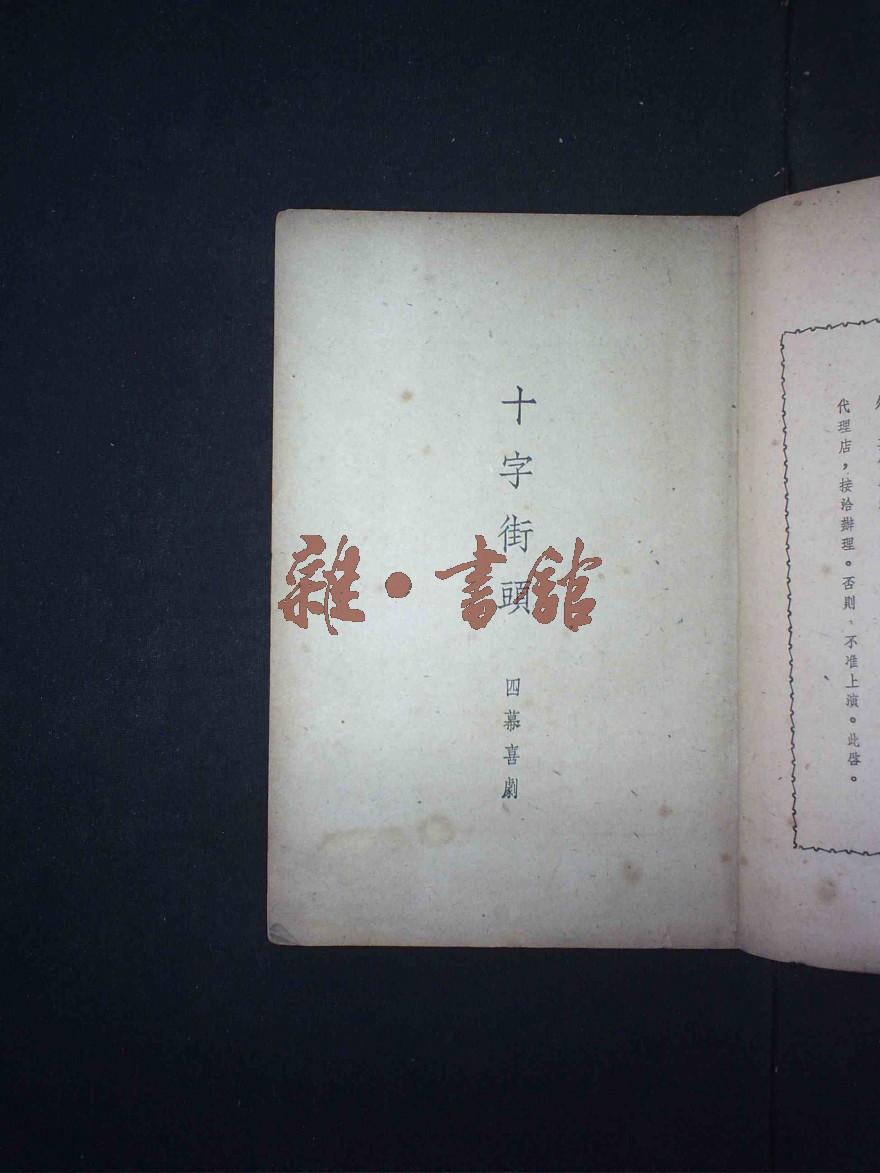 十字街頭
四幕喜劇
雜·書館
代理店，接洽辦理。否則、不准上演。此啓。